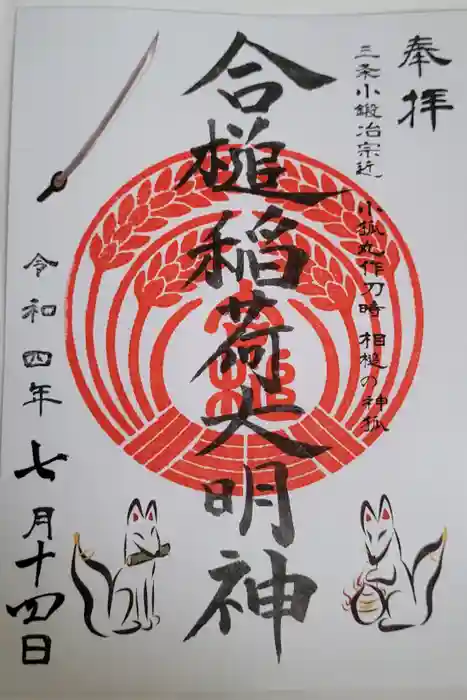 奉拝
三条小鍛冶宗近 小狐丸作刀時 相槌の神狐
合槌稲荷大明神
令和四年七月十四日